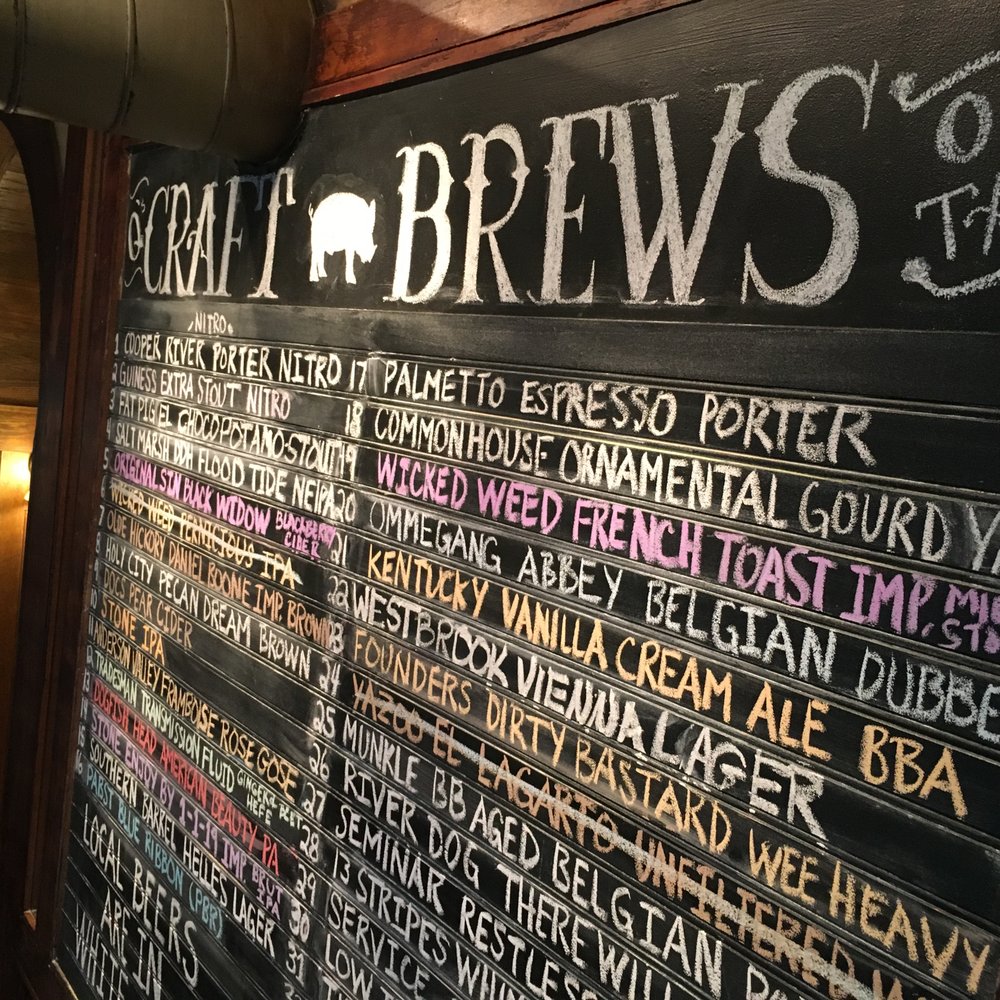 CRAFT BREWS
NITRO
1 COOPER RIVER PORTER NITRO
2 GUINESS EXTRA STOUT NITRO
3 FAT PIG EL CHOCOPOTAMO-STOUT
4 SALT MARSH DDH FLOOD TIDE NEIPA
5 ORIGINAL SIN BLACK WIDOW BLACKBERRY CIDER
WICKED WEED PERNICIOUS IPA
7 OLDE HICKORY DANIEL BOONE IMP. BROWN
8 HOLY CITY PECAN DREAM BROWN
9 DOCS PEAR CIDER
10 STONE IPA
11 ANDERSON VALLEY FRAMBOISE ROSE GOSE
12 TRADESMAN TRANSMISSION FLUID GINGER & BEET HEFE
13 DOGFISH HEAD AMERICAN BEAUTY PA
14 STONE ENJOY BY 1-1-19 IMP. BRUT IPA
15 SOUTHERN BARREL HELLES LAGER
16 PABST BLUE RIBBON (PBR)
LOCAL BEERS
ARE IN
WHITE
17 PALMETTO ESPRESSO PORTER
18 COMMONHOUSE ORNAMENTAL GOURD
19 WICKED WEED FRENCH TOAST IMP.
20 OMMEGANG ABBEY BELGIAN DUBBE
21 KENTUCKY VANILLA CREAM ALE BBA
22 WESTBROOK VIENNA LAGER
23 FOUNDERS DIRTY BASTARD WEE HEAVY
24 YAZOO EL LAGARTO UNFILTERED
25 MUNKLE BB AGED BELGIAN
26 RIVER DOG THERE WILL
27 SEMINAR RESTLESS
28 13 STRIPES
29 SERVICE
30 LOW
31